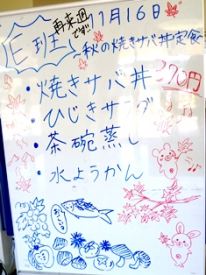 E班
再来週です!!
11月16日
秋の焼きサバ丼定食
370円
・焼きサバ丼
・ひじきサラダ
・茶碗蒸し
・水ようかん